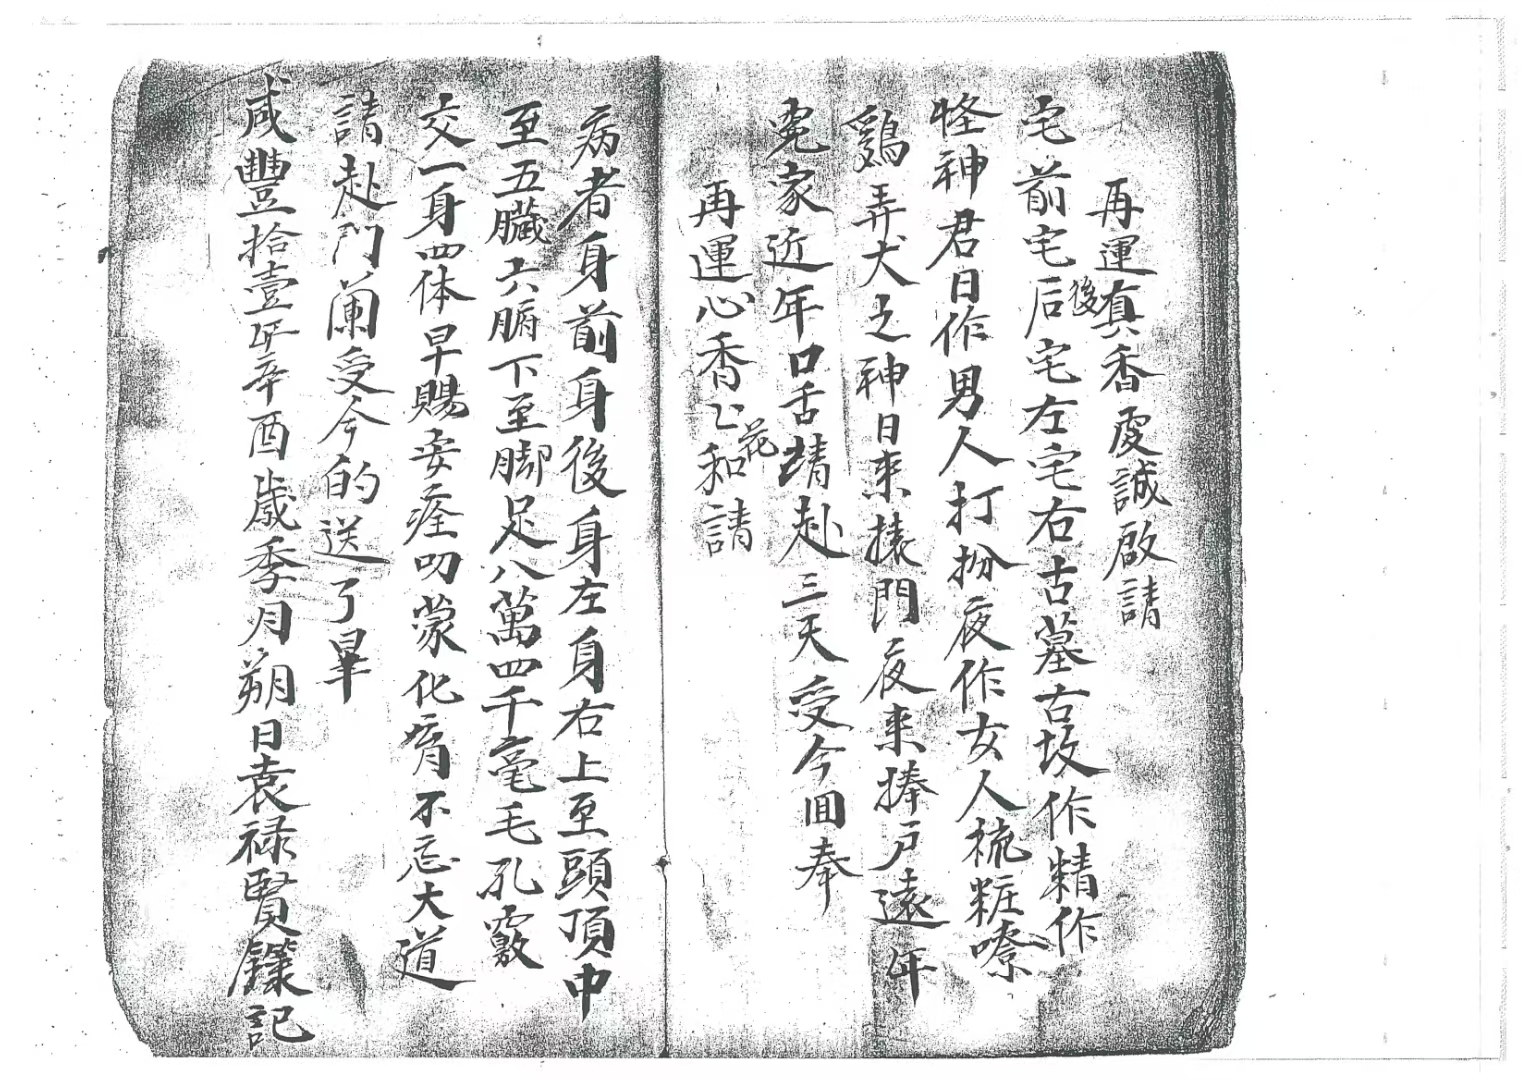 再運真香虔誠啟請
宅前宅后後宅左宅右古墓古坟作精作
怪神君日作男人打扮夜作女人梳粧嘹
鷄弄犬之神日来掾門夜来捧户遠年
冤家近年口舌請赴三天受今回奉
再運心香匕花和請
病者身前身後身左身右上至頭頂中
至五臟六腑下至脚足八萬四千毫毛孔竅
交一身四体早賜安痊叨蒙化育不忘大道
請赴門闌受今的送了畢
咸豐拾壹年辛酉歲季月朔日袁禄賢鏶記